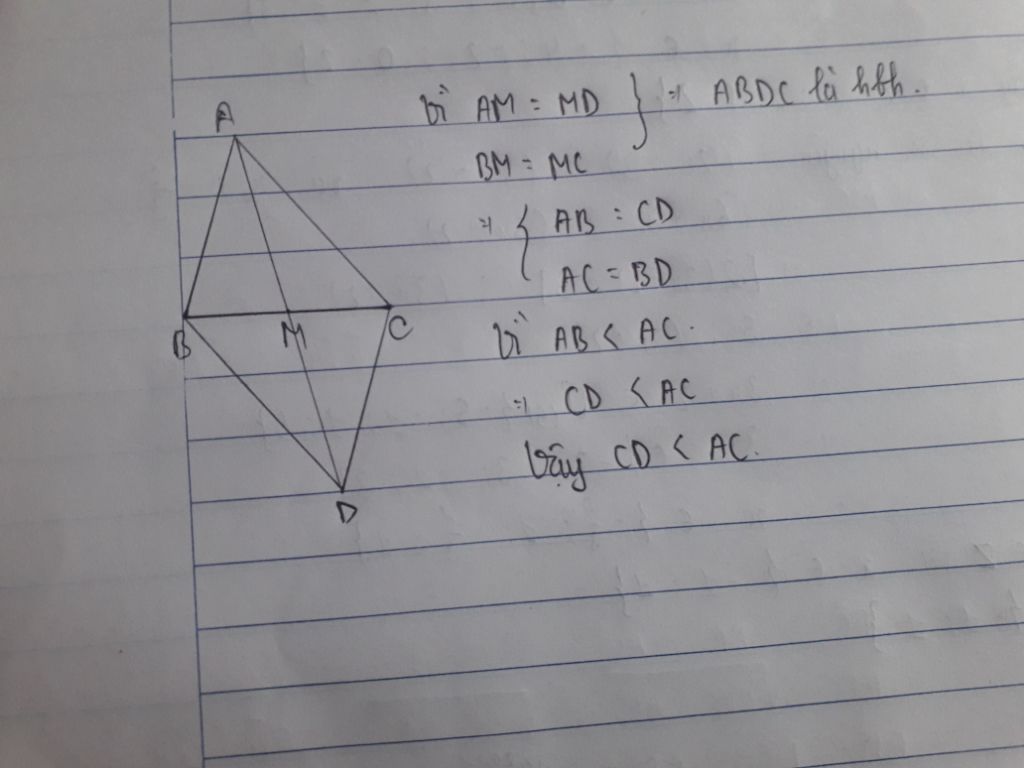 A
B
M
C
D
Vì AM = MD } => ABDC là hbh.
BM = MC
=> { AB = CD
AC = BD
Vì AB < AC.
=> CD < AC
Vậy CD < AC.